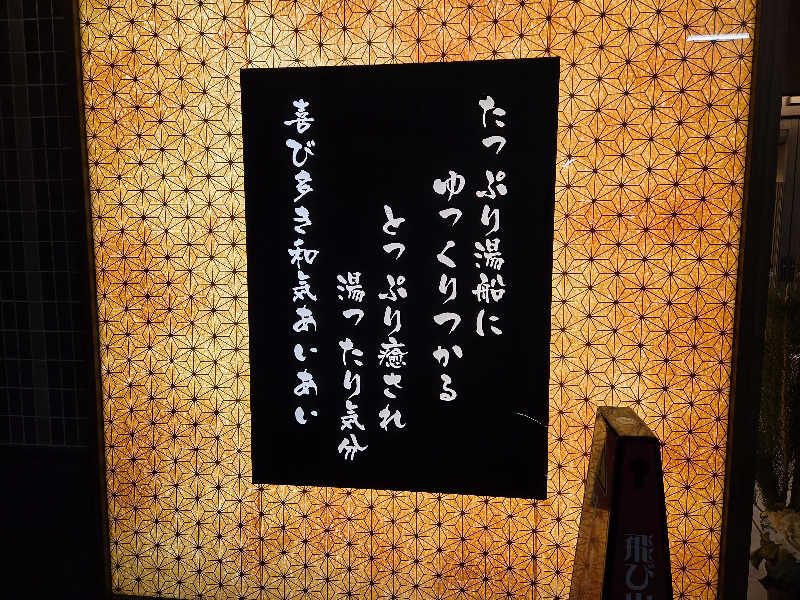 たっぷり湯船に
ゆっくりつかる
とっぷり癒され
湯ったり気分
喜び多き和気あいあい
飛び